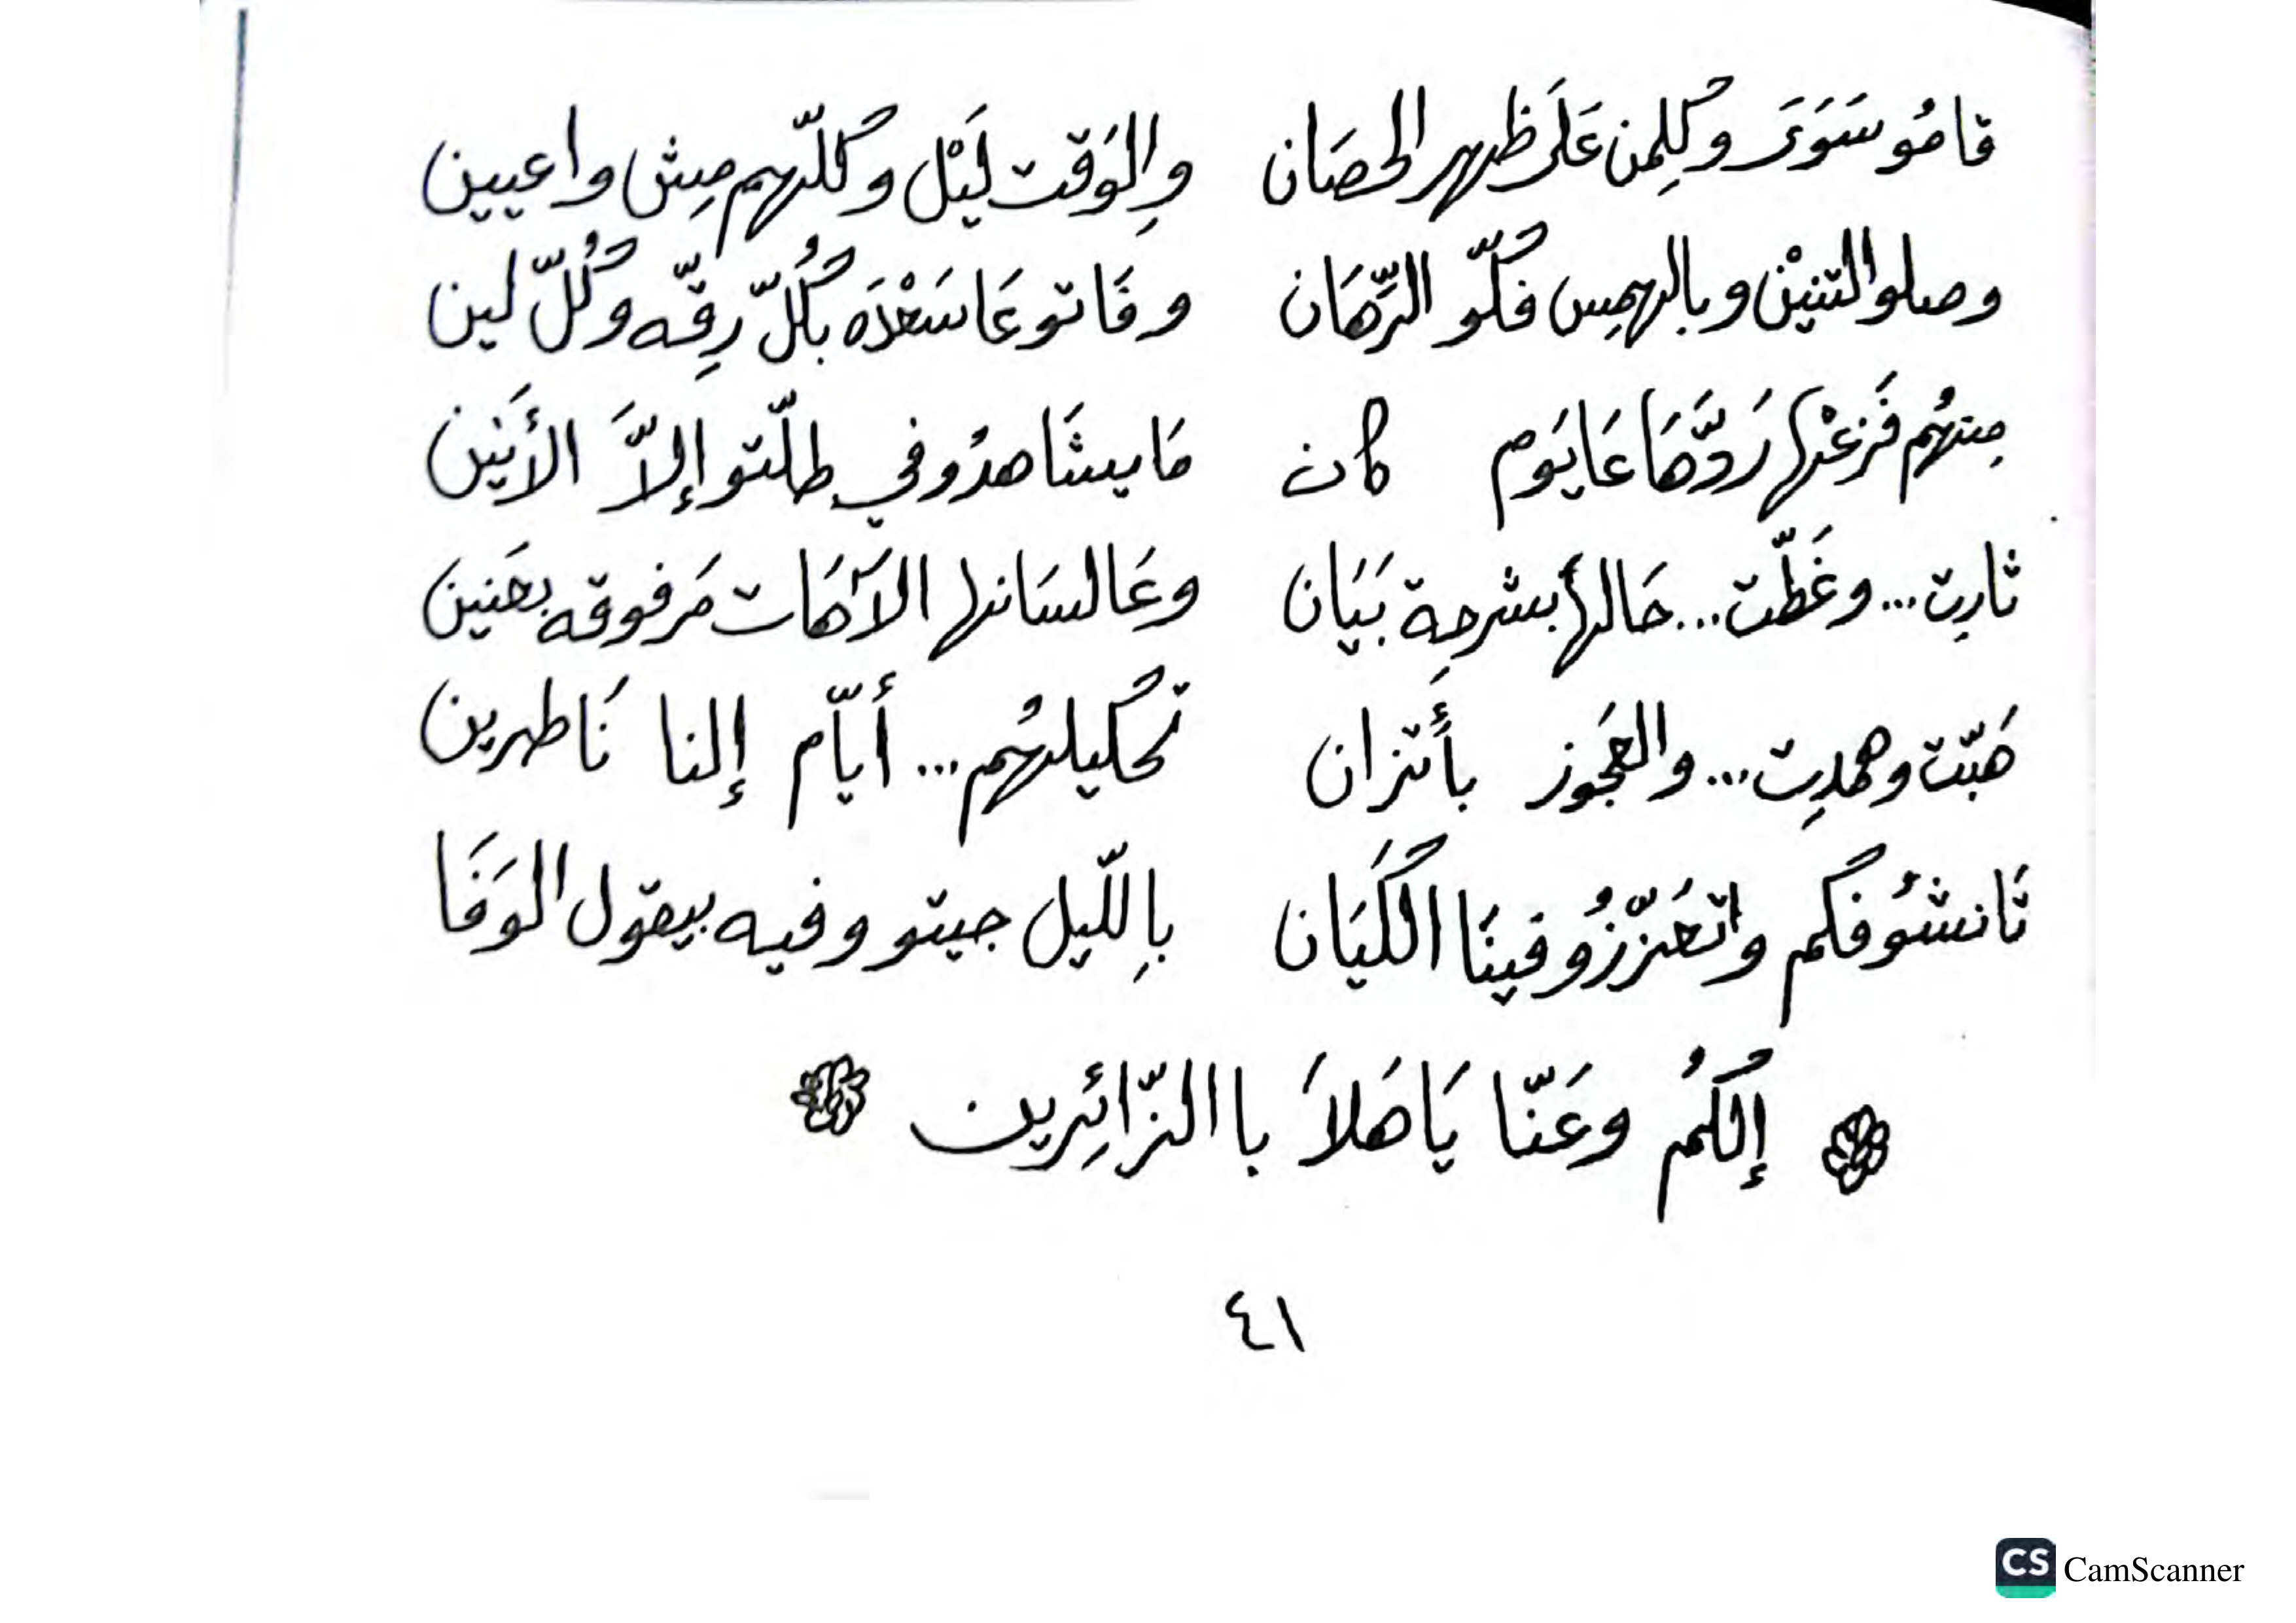 قامُو سَوَىَ وكلِمن عَلَى ظهر الحصَان والوَقت لَيْل وكلّهم مِش واعيين
وصلو التنيْن وبالهمِس فكّو الرِّهَان وفَاتو عَا سَعْدَه بكُلّ رِقّه وكُلّ لين
مِنهُم فَزعْها رَدَّهَا عَا يَوم كان مَا يشَاهدُو في طلّتو إلاَّ الأنَين
ثارِت... وغَطّت... حَالها بشرحِة بَيَان وعَا لسَانها الآهَات مَرفوقه بحَنين
هَبّت وهمدِت... والعَجوز بأتزان تحكيلهُم... أيّام إلنا نَاطرين
تَا نشوفكم واتعَزّزُو فينَا الكَيَان بالِلّيل جيتو وفيه بيقول الوَفَا
إلكُم وعَنّا يَا هَلاَ باالزّائِرين
٤١
CS CamScanner